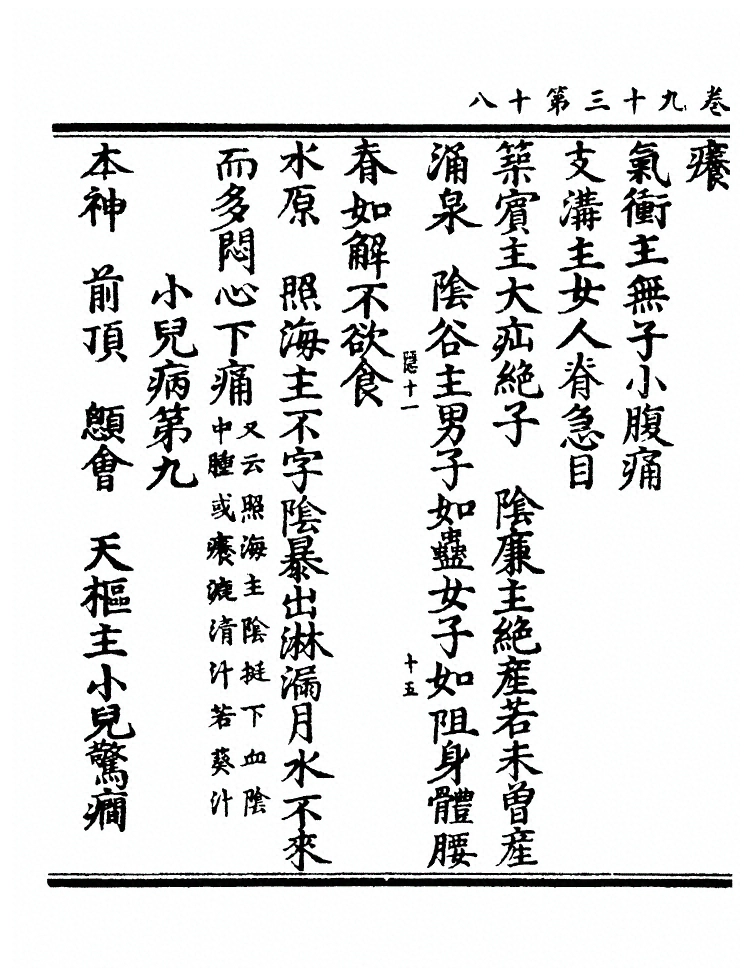 卷九十三第十八
癢
氣衝主無子小腹痛
支溝主女人脊急目
築賓主大疝絶子　陰廉主絶産若未曾産
涌泉　陰谷主男子如蠱女子如阻身體腰
隱十一
十五
脊如解不欲食
水原　照海主不字陰暴出淋漏月水不來
而多悶心下痛
又云照海主陰挺下血陰
中腫或癢漉清汁若葵汁
小兒病第九
本神　前頂　顖會　天樞主小兒驚癇